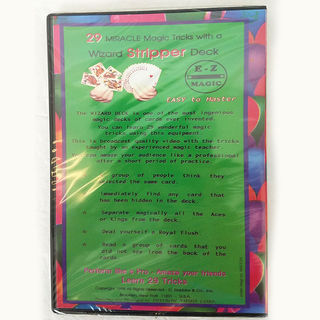 29 MIRACLE Magic Tricks with a
Wizard Stripper Deck
E-Z
MAGIC
EASY to Master
The WIZARD DECK is one of the most ingenious
magic decks of cards ever invented.
You can learn 29 wonderful magic
tricks using this equipment.
This is broadcast quality video with the tricks
taught by an experienced magic teacher.
You can amaze your audience like a professional
after a short period of practice.
A group of people think they
selected the same card.
Immediately find any card that
has been hidden in the deck.
Separate magically all the Aces
or Kings from the deck.
Deal yourself a Royal Flush!
Read a group of cards that you
did not see from the back of the
cards.
amaze your friends
Learn 29 Tricks
All Rights Reserved
Brooklyn, New York 11201 U.S.A.